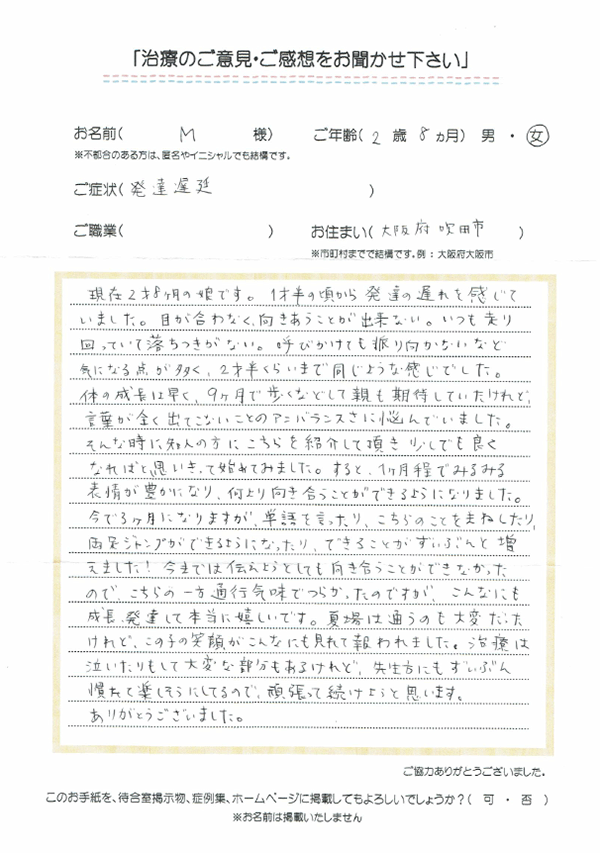 「治療のご意見・ご感想をお聞かせ下さい」
お名前( M 様) ご年齢( 2 歳 8 ヵ月) 男 ・ 女
※不都合のある方は、匿名やイニシャルでも結構です。
ご症状( 発達遅延 )
ご職業( ) お住まい( 大阪府吹田市 )
※市町村までで結構です。例：大阪府大阪市
現在2才8ヶ月の娘です。1才半の頃から発達の遅れを感じて
いました。目が合わなく、向きあうことが出来ない。いつも走り
回っていて落ちつきがない。呼びかけても振り向かないなど
気になる点が多く、2才半くらいまで同じような感じでした。
体の成長は早く、9ヶ月で歩くなどして親も期待していたけれど、
言葉が全く出てこないことのアンバランスさに悩んでいました。
そんな時に知人の方にこちらを紹介して頂き少しでも良く
なればと思いきって始めてみました。すると、1ヶ月程でみるみる
表情が豊かになり、何より向き合うことができるようになりました。
今で3ヶ月になりますが、単語を言ったり、こちらのことをまねしたり、
両足ジャンプができるようになったり、できることがずいぶんと増
えました！今までは伝えようとしても向き合うことができなかった
ので、こちらの一方通行気味でつらかったのですが、こんなにも
成長、発達して本当に嬉しいです。夏場は通うのも大変だった
けれど、この子の笑顔がこんなにも見れて報われました。治療は
泣いたりもして大変な部分もあるけれど、先生方にもずいぶん
慣れて楽しそうにしてるので、頑張って続けようと思います。
ありがとうございました。
ご協力ありがとうございました。
このお手紙を、待合室掲示物、症例集、ホームページに掲載してもよろしいでしょうか？( 可 ・ 否 )
※お名前は掲載いたしません